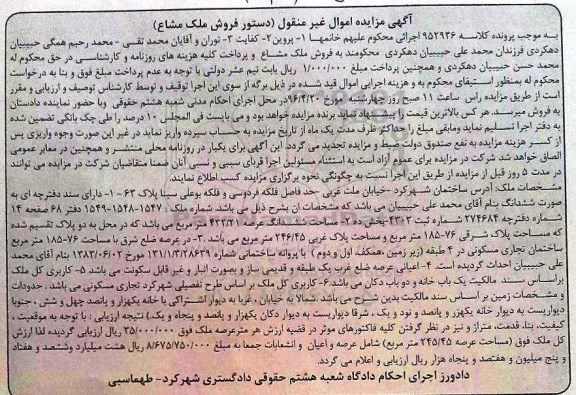 آگهی مزایده اموال غیر منقول (دستور فروش ملک مشاع)
به موجب پرونده کلاسه ۹۵۲۹۳۶ اجرائی محکوم علیهم خانمها ۱- پروین۲- کفایت ۳- توران و آقایان محمد تقی - محمد رحیم همگی حبیبیان
دهکردی فرزندان محمد علی حبیبیان دهکردی محکومند به فروش ملک مشاع و پرداخت کلیه هزینه های روزنامه و کارشناسی در حق محکوم له
محمد حسن حبیبیان دهکردی و همچنین پرداخت مبلغ ۱/۰۰۰/۰۰۰ ریال بابت نیم عشر دولتی با توجه به عدم پرداخت مبلغ فوق و بنا به درخواست
محکوم له بمنظور استیفای محکوم به و هزینه اجرایی اموال قید شده در ذیل برگه از سوی این اجرا توقیف و توسط کارشناس توصیف و ارزیابی و مقرر
است از طریق مزایده راس ساعت ۱۱ صبح روز چهارشنبه مورخ ۹۶/۴/۲۰ در محل اجرای احکام مدنی شعبه هشتم حقوقی وبا حضور نماینده دادستان
به فروش میرسد. هر کس بالاترین قیمت را پیشنهاد نماید برنده مزایده خواهد بود و می بایست فی المجلس ۱۰ درصد را طی چک بانکی تضمین شده
به دفتر اجرا تسلیم نماید ومابقی مبلغ را حداکثر ظرف مدت یک ماه از تاریخ مزایده به حساب سپرده واریز نماید در غیر این صورت وجوه واریزی پس
از کسر هزینه مزایده به نفع صندوق دولت ضبط و مزایده تجدید می گردد. این آگهی برای یکبار در روزنامه محلی منتشر و همچنین در معابر عمومی
الصاق خواهد شد شرکت در مزایده برای عموم آزاد است به استثناء مسئولین اجرا قربای سببی و نسبی آنان ضمنا متقاضیان شرکت در مزایده می توانند
در مدت ۵ روز قبل از مزایده از طریق این اجرا نسبت به چگونگی نحوه برگزاری مزایده کسب اطلاع نمایند.
مشخصات ملک: آدرس ساختمان شهرکرد -خیابان ملت غربی -حد فاصل فلکه فردوسی و فلکه بوعلی سینا پلاک ۶۳ - ۱- دارای سند دفترچه ای به
صورت ششدانگ بنام آقای محمد علی حبیبیان می باشد که مشخصات آن بشرح ذیل می باشد. شماره ملک: ۱۵۴۷-۱۵۴۸-۱۵۴۹ دفتر ۶۸ صفحه ۱۴
شماره دفترچه ۲۷۴۶۸۴ شماره ثبت ۴۳۰۳-بخش۲۰- مساحت ششدانگ عرصه ۴۳۲/۲۱ متر مربع می باشد که در محل به دو پلاک تقسیم شده
که مساحت پلاک شرقی ۱۸۵-۷۶ متر مربع و مساحت پلاک غربی ۲۴۶/۴۵ متر مربع می باشد .۳- در عرصه ضلع شرق با مساحت ۱۸۵-۷۶ متر مربع
ساختمان تجاری مسکونی در ۴ طبقه (زیر زمین ،همکف، اول و دوم ) با پروانه ساختمانی شماره ۱۳۱/۱/۳/۲۸۶۳۹ مورخ ۱۳۸۳/۰۶/۰۲ بنام آقای محمد
علی حبیبیان احداث گردیده است. ۴- اعیانی عرصه ضلع غرب یک طبقه و قدیمی ساز و بصورت انبار و غیر قابل سکونت می باشد ۵- کاربری کل ملک
براساس سند مالکیت یک باب خانه و دو باب دکان می باشد.۶- کاربری کل ملک بر اساس طرح تفصیلی شهرکرد تجاری مسکونی می باشد . حدودات
و مشخصات زمین بر اساس سند مالکیت بدین شرح می باشد شمالا به خیابان ، غربا به دیوار اشتراکی با خانه یکهزار و پانصد چهل و شش ، جنوبا
دیواریست به دیوار خانه یکهزر و پانصد و نود و یک ، شرقا دیواریست به دیوار دکان یکهزار و پانصد و پنجاه و یک.) نتیجه ارزیابی : با توجه به موقعیت ،
کیفیت، بنا، قدمت، متراژ و نیز در نظر گرفتن کلیه فاکتورهای موثر در قضیه ارزش هر مترعرصه ملک فوق ۳۵/۰۰۰/۰۰۰ ریال ارزیابی گردیده لذا ارزش
کل ملک فوق (مساحت عرصه ۲۴۵/۴۵ متر مربع) شامل عرصه و اعیان و انشعابات جمعا به مبلغ ۸/۶۷۵/۷۵۰/۰۰۰ ریال هشت میلیارد وششصد و هفتاد
و پنج میلیون و هفتصد و پنجاه هزار ریال ارزیابی و اعلام می گردد.
دادورز اجرای احکام دادگاه شعبه هشتم حقوقی دادگستری شهرکرد- طهماسبی